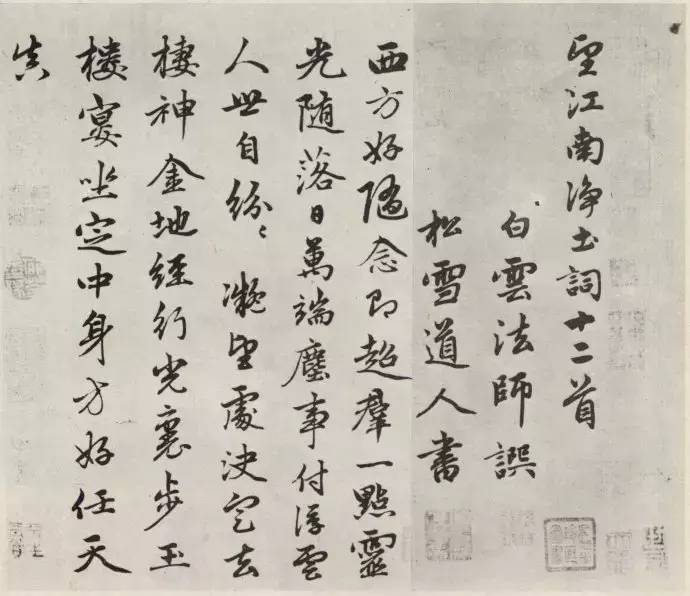 望江南净土詞十二首
白雲法師譔
松雪道人書
西方好随念即超羣一點靈
光随落日萬端塵事付浮雲
人世自紛〻凝望處決定去
棲神金地經行光裏步玉
樓宴坐定中身方好任天
真